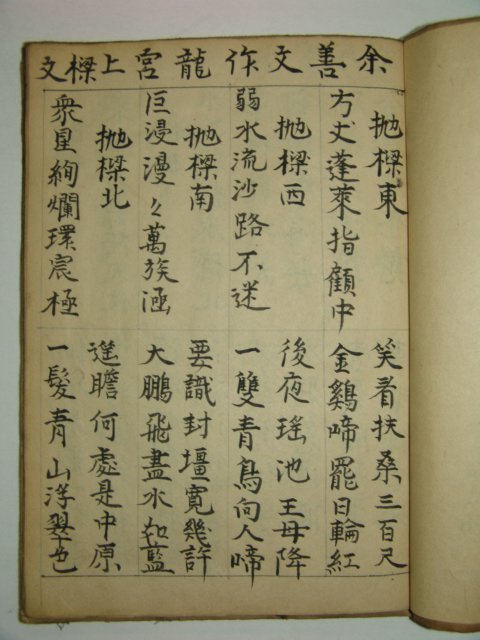 余善文作龍宮上樑文
拋樑東
方丈蓬萊指顧中
笑看扶桑三百尺
金鷄啼罷日輪紅
拋樑西
弱水流沙路不迷
後夜瑤池王母降
一雙青鳥向人啼
拋樑南
巨漫漫々萬族涵
要識封壃寬幾許
大鵬飛盡水如藍
拋樑北
衆星絢爛環宸極
遙瞻何處是中原
一髮青山浮翠色